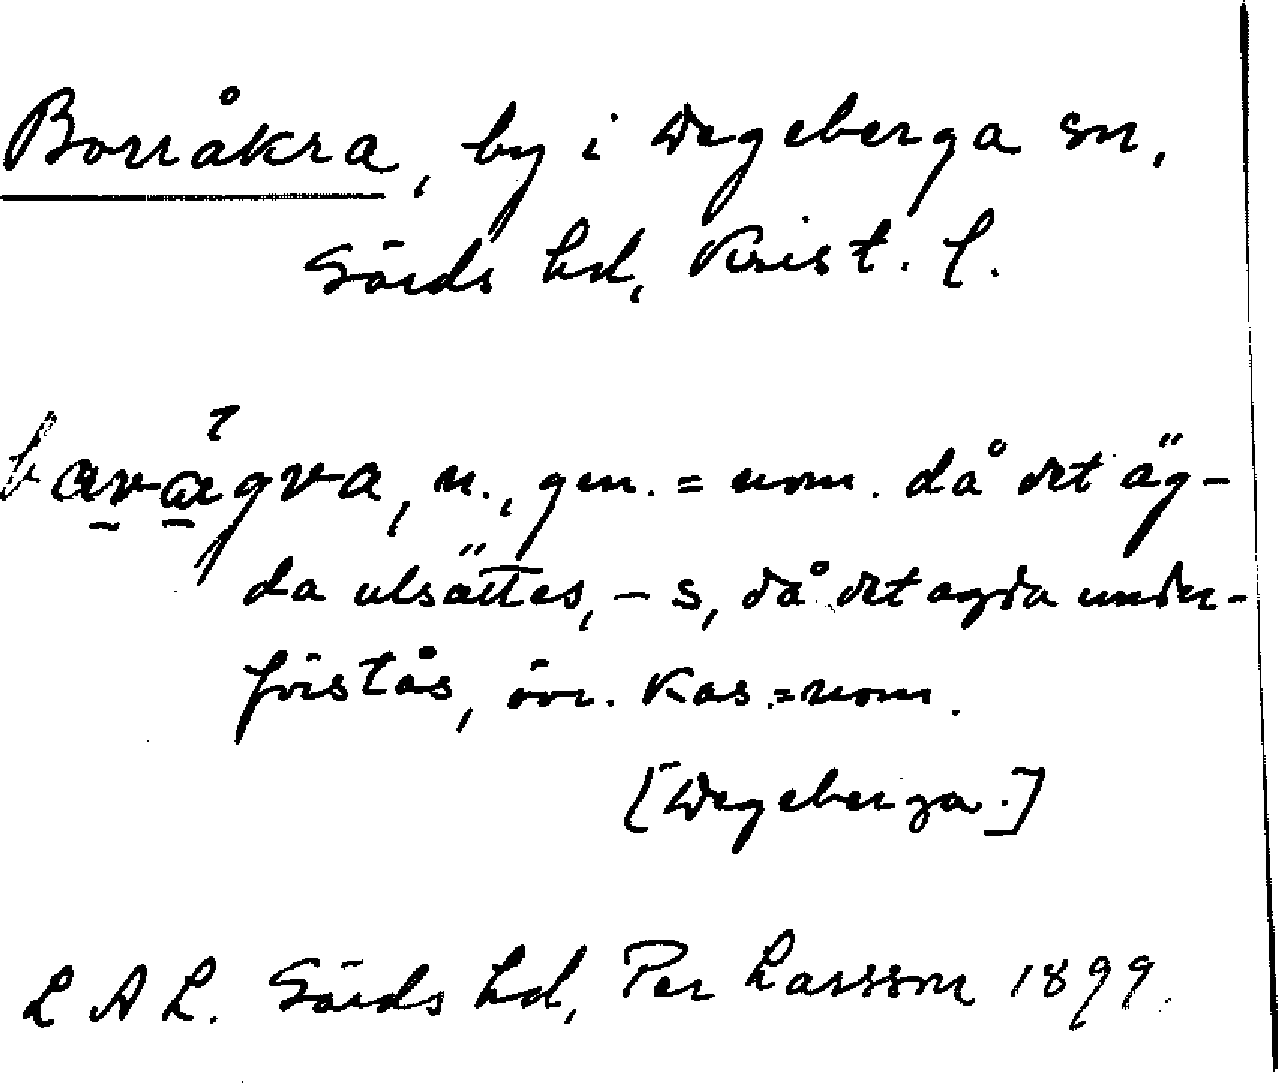 Borråkra, by i Degeberga sn,
Gärds hd, Krist. l.
bavägva, n., gen. = nom. då det äg-
da utsättes, – s, då det ägda under-
förstås, övr. Kas. = nom.
[Degeberga.]
L A L. Gärds hd, Per Larsson 1899.